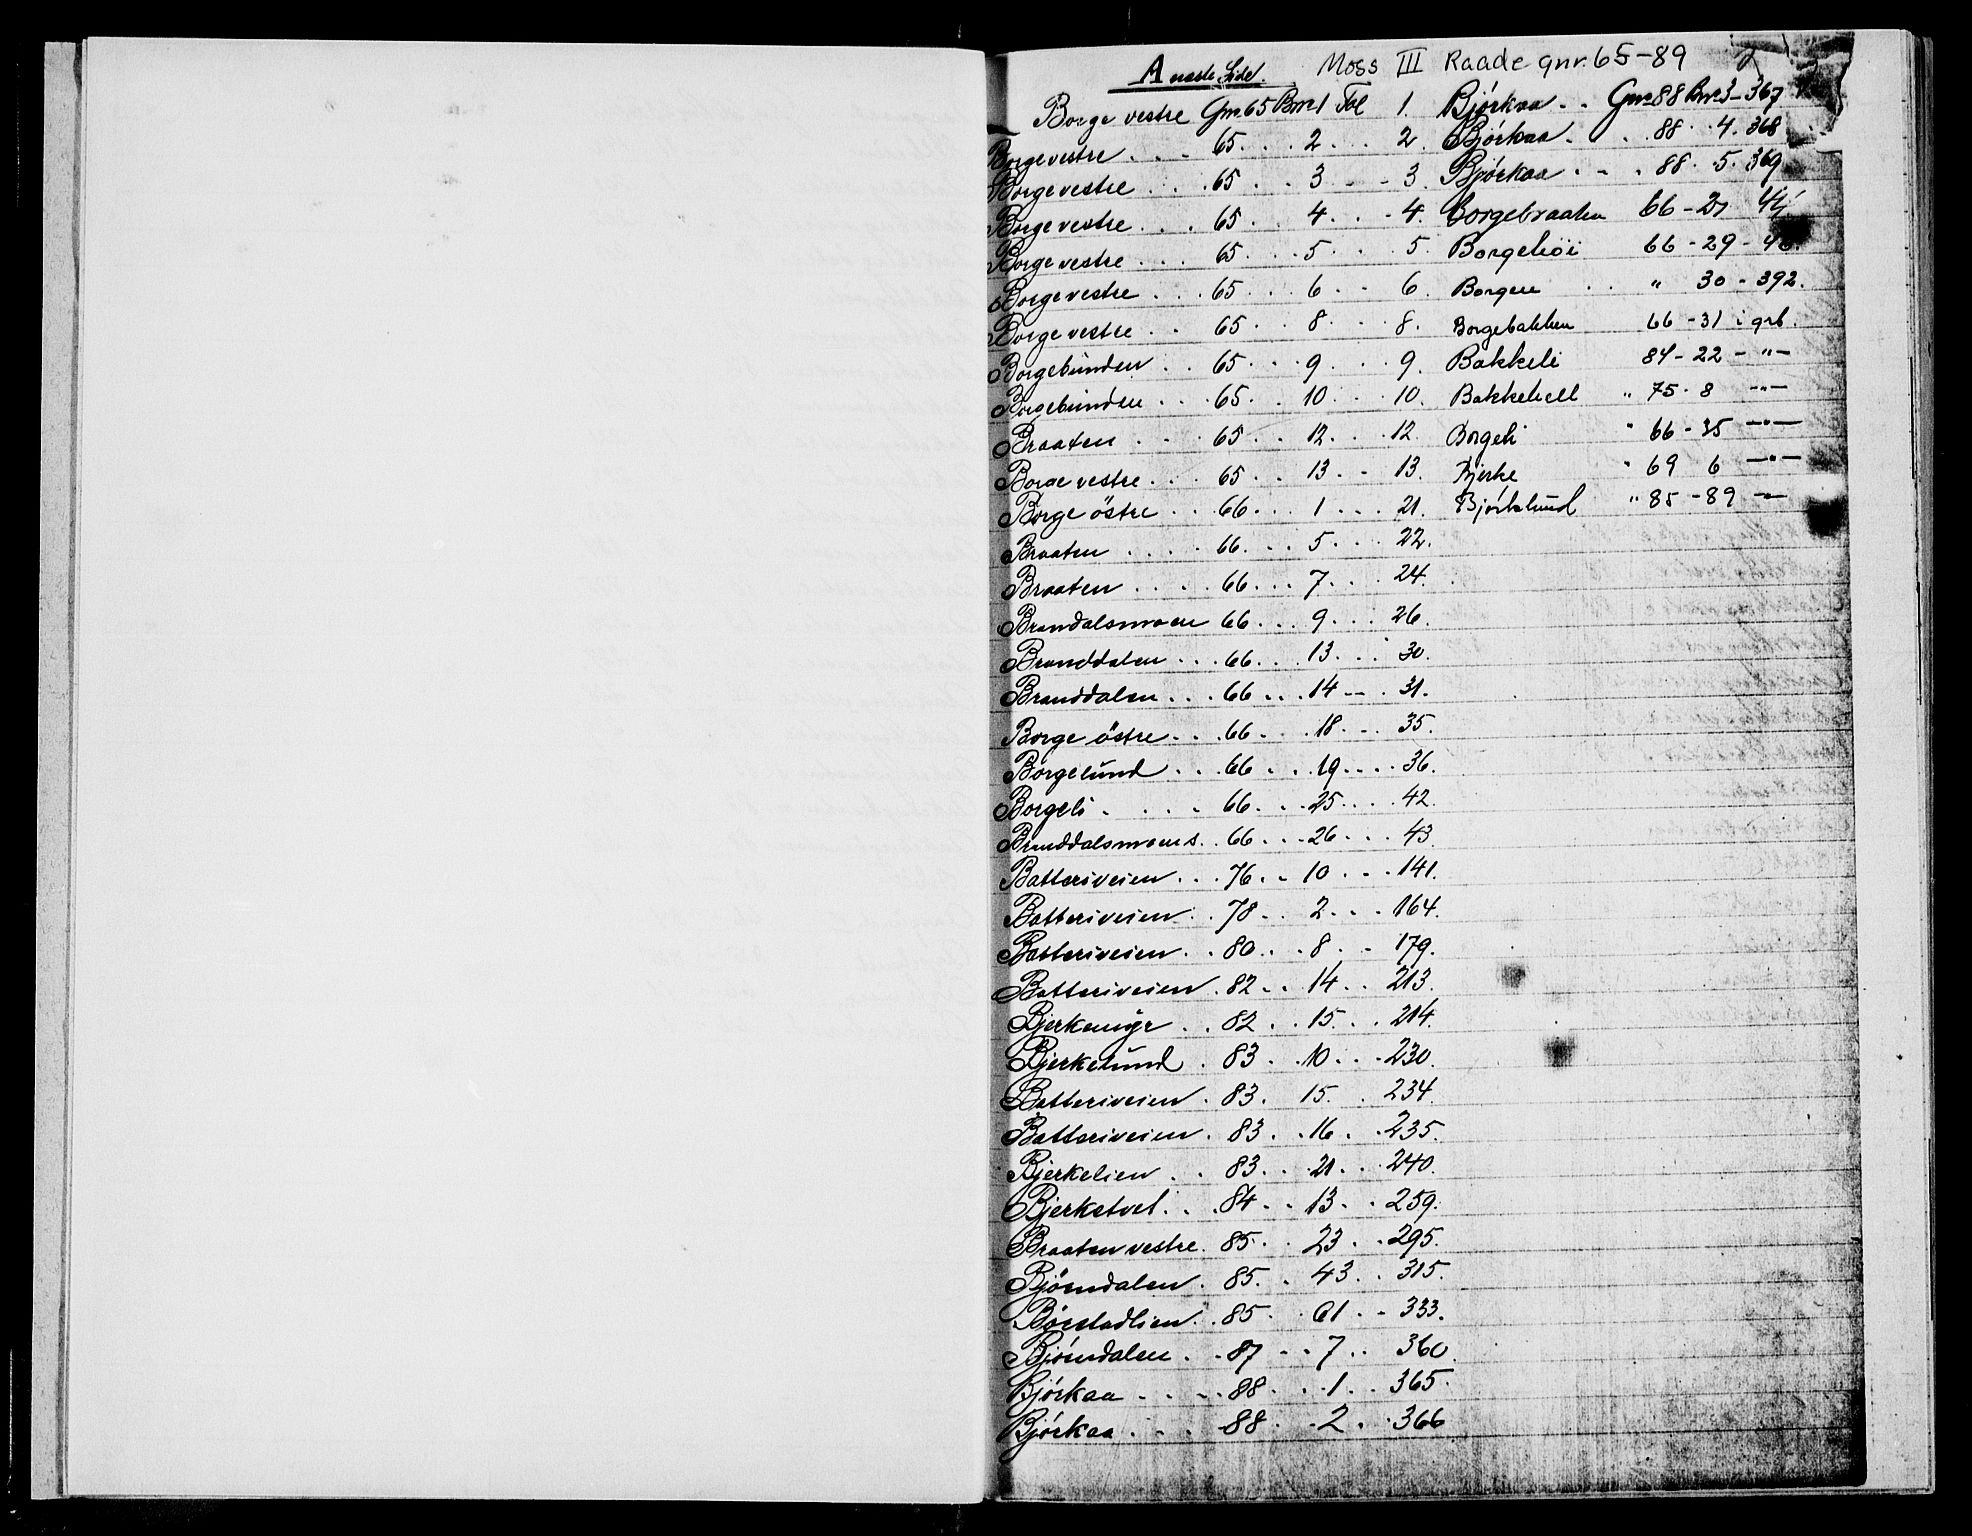 A næste Side. Moss III Raade gnr. 65-89 2
Borge vestre Gnr 65 Bnr 1 Fol 1. Bjørkaa . . Gnr 88 Bnr 3 - 367
Borge vestre . . . 65 . . . 2 . . . 2. Bjørkaa . . . 88 . . 4 . 368
Borge vestre . . . 65 . . . 3 . . . 3. Bjørkaa . . . 88 . 5 . 369
Borge vestre . . . 65 . . . 4 . . . 4. Borgebraaten 66 - 27 44
Borge vestre . . . 65 . . . 5 . . . 5. Borgehøi 66 - 29 -
Borge vestre . . . 65 . . . 6 . . 6. Borgen . . " 30 - 392.
Borge vestre . . 65 . . . 8 . . . 8. Borgebakken 66 - 31 i grb.
Borgebunden . . 65 . . . 9 . . . 9. Bakkeli 84 - 22 - " -
Borgebunden . . . 65 . . 10 . . . 10. Bakkehell " 75 . 8 - " -
Braaten . . . 65 . . 12 . . . 12. Borgeli " 66 - 35 - " -
Borge vestre . . . 65 . . 13 . . 13. Bjerke " 69 6 - " -
Borge östre . . 66 . . . 1 . . . 21. Bjørkelund " 85 - 89 - " -
Braaten . . . . 66 . . . 5 . . . 22.
Braaten . . . . 66 . . . 7 . . . 24.
Brandalsmoen 66 . . . 9 . . . 26.
Branddalen . . . 66 . . . 13 . . . 30.
Branddalen . . . 66 . . . 14 - . 31.
Borge östre . . 66 . . . 18 . . . 35.
Borgelund . . . 66 . . 19 . . . . 36.
Borgeli . . . . 66 . . . 25 . . . . 42.
Branddalsmoens . . 66 . . . 26 . . . 43.
Batteriveien . . . 76 . . 10 . . . 141.
Batteriveien . . 78 . . 2 . . . 164.
Batteriveien . . 80 . . . 8 . . 179.
Batteriveien . 82 . . 14 . . 213.
Bjerkemyr . . 82 . . 15 . . 214.
Bjerkelund . 83 . . 10 . . . 230.
Batteriveien . 83 . 15 . . 234.
Batteriveien . 83 . . 16 . . 235.
Bjerkelien . . 83 . . 21 . . . 240.
Bjerketvet . . . 84 . . 13 . . 259.
Braaten vestre . 85 . . 23 . . 295.
Björndalen . 85 . . 43 . . 315.
Børstadlien . . 85 . . 61 . . 333.
Bjørndalen . . 87 . . 7 . . 360.
Bjørkaa . . . . 88 . . . 1 . . 365.
Bjørkaa . . . 88 . . 2 . . 366